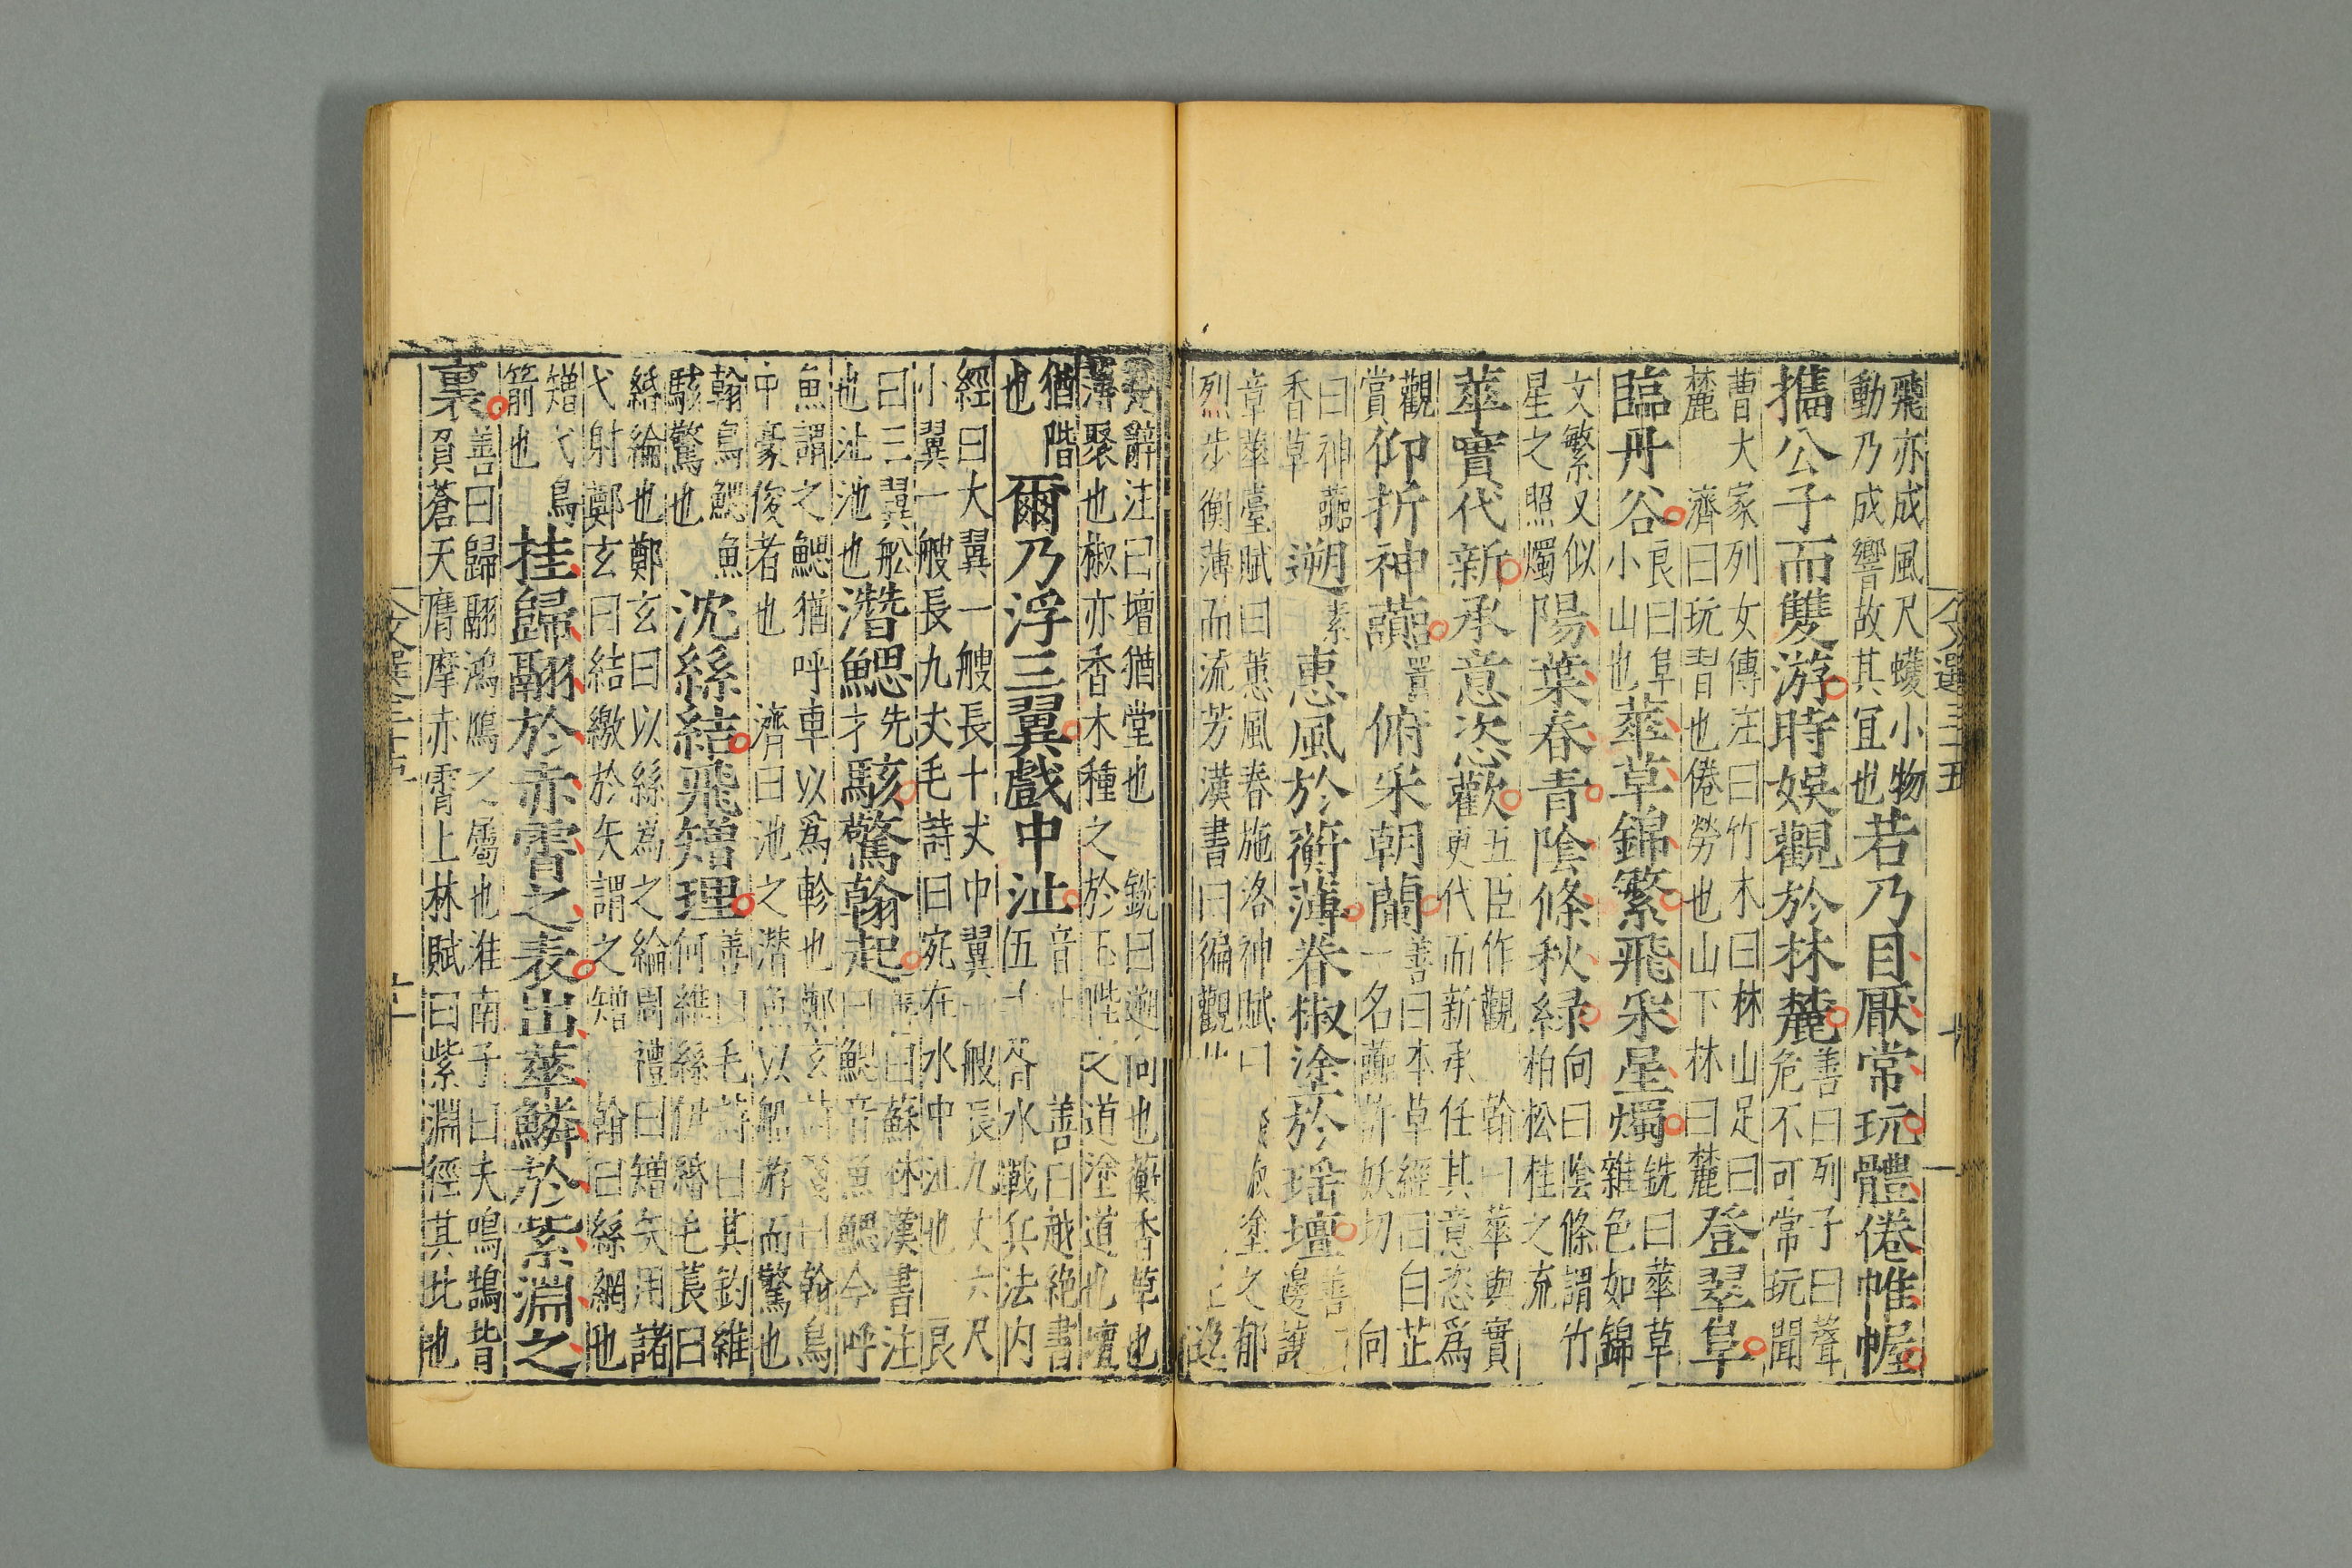 飛亦成風尺蠖小物
動乃成響故其宜也
若乃目厭常玩體倦帷幄
攜公子而雙游時娛觀於林麓
善曰列子曰聲
危不可常玩聞
曹大家列女傳注曰竹木曰林山足曰
麓　濟曰玩習也倦勞也山下林曰麓
登翠阜
臨丹谷
良曰阜
小山也
華草錦繁飛采星燭
銑曰華草
雜色如錦
文繁又似
星之照燭
陽葉春青陰條秋綠
向曰陰條謂竹
柏松桂之流
華實代新承意恣歡
五臣作觀　翰曰華與實
更代而新承任其意恣爲
觀
賞
仰折神虈
俯采朝蘭
善曰本草經曰白芷
一名虈許妖切　向
曰神虈
香草
遡
素
惠風於蘅薄眷椒塗於瑤壇
善
邊讓
章華臺賦曰蕙風春施洛神賦曰
塗之郁
烈步衡薄而流芳漢書曰徧觀
楚辭注曰壇猶堂也　銑曰遡向也蘅香草也
薄聚也椒亦香木種之於玉陛之道塗道也壇
猶階
也
爾乃浮三翼戲中沚
音止　善曰越絕書
伍子胥水戰兵法內
經曰大翼一艘長十丈中翼一艘長九丈六尺
小翼一艘長九丈毛詩曰宛在水中沚也　良
曰三翼船
也沚池也
潛鰓
先
才
駭驚翰起
善曰蘇林漢書注
曰鰓音魚鰓今呼
魚謂之鰓猶呼車以爲軫也鄭玄詩箋曰翰鳥
中豪俊者也　濟曰池之潛魚以船游而驚也
翰鳥鰓魚
駭驚也
沈絲結飛矰理
善曰毛詩曰其釣維
何維絲伊緡毛萇曰
緡綸也鄭玄曰以絲爲之綸周禮曰矰矢用諸
弋射鄭玄曰結繳於矢謂之矰　翰曰絲網也
矰弋鳥
箭也
挂歸翮於赤霄之表出華鱗於紫淵之
裏
善曰歸翮鴻鴈之屬也淮南子曰夫鳴鵠背
負蒼天膺摩赤霄上林賦曰紫淵徑其北也